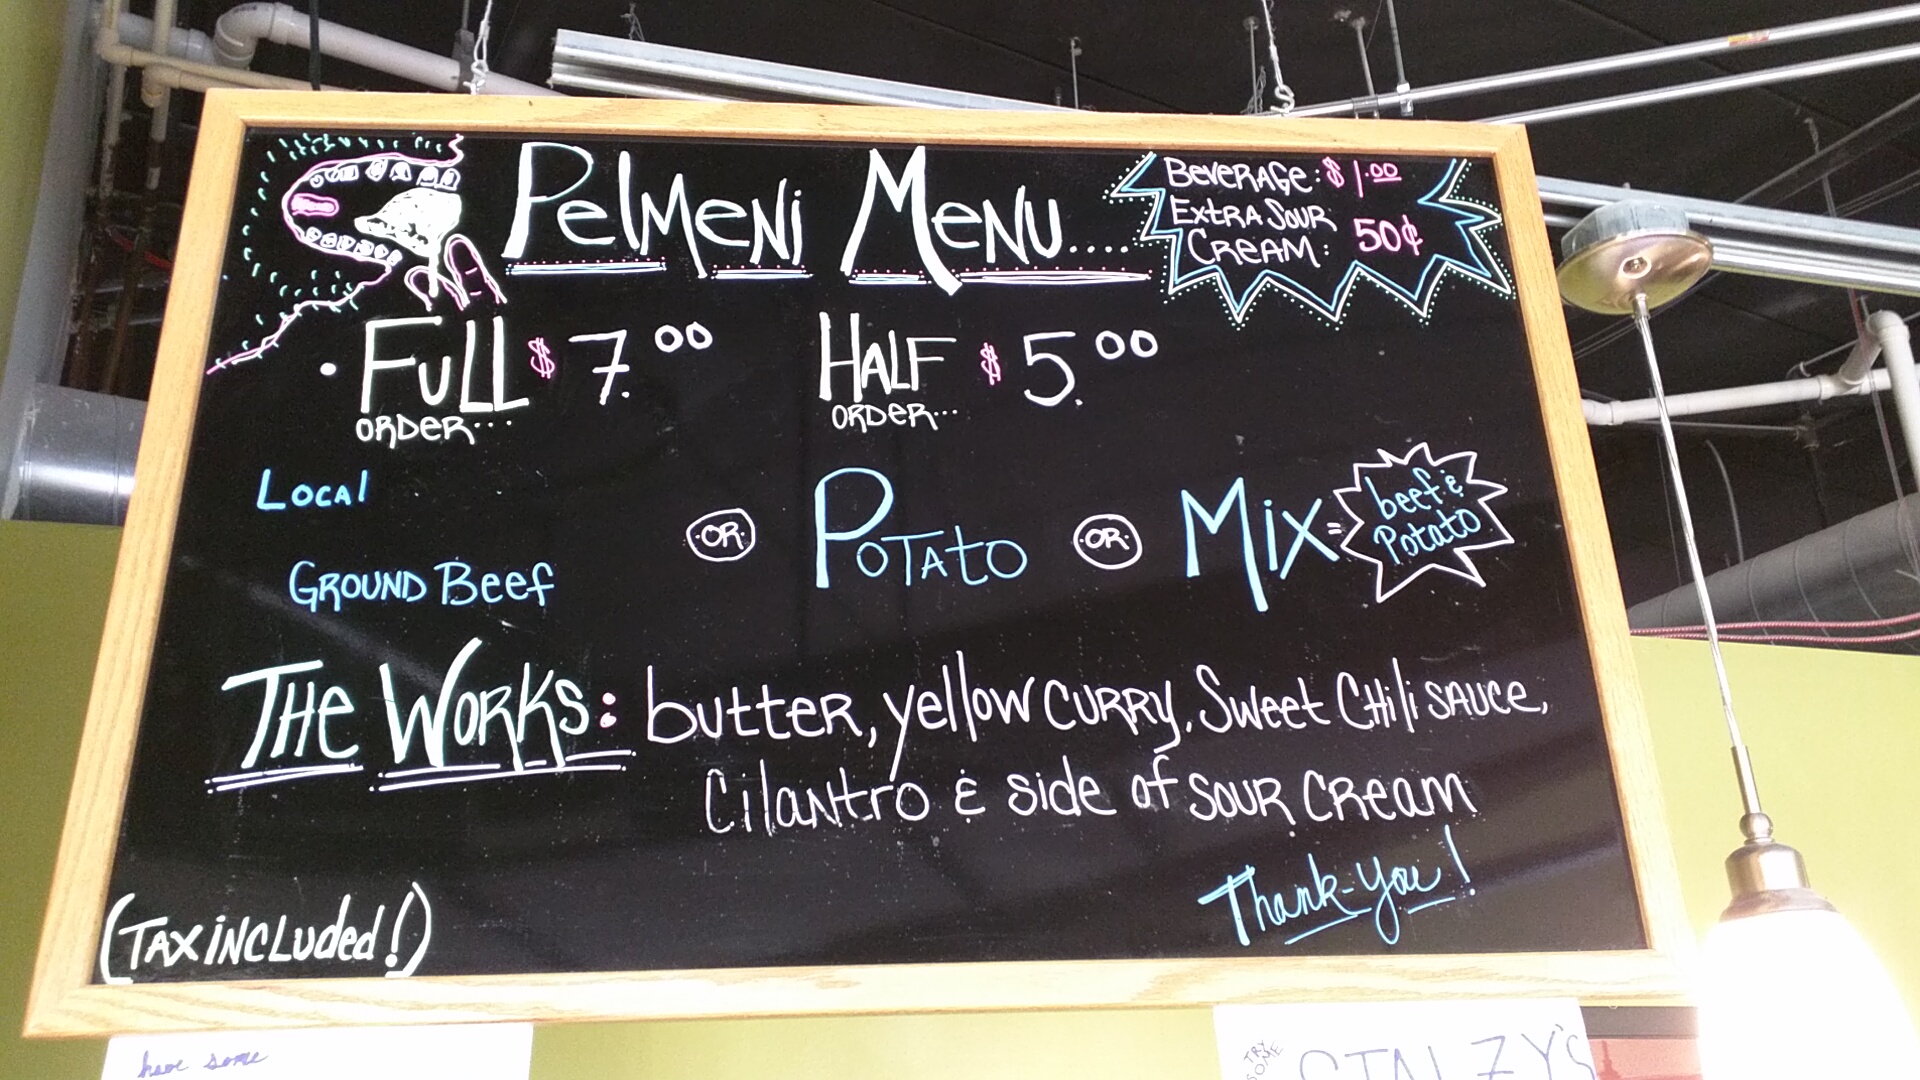 Pelmeni Menu....
Beverage: $1.00
Extra Sour
Cream: 50¢
• Full $7.00
order...
Half $5.00
order...
Local
Ground Beef
OR
Potato
OR
Mix=
beef &
Potato
The Works: butter, yellow curry, Sweet Chili sauce,
Cilantro & side of sour cream
Thank-you!
(Tax included!)
have some
TRY
SOME
STALZY'S